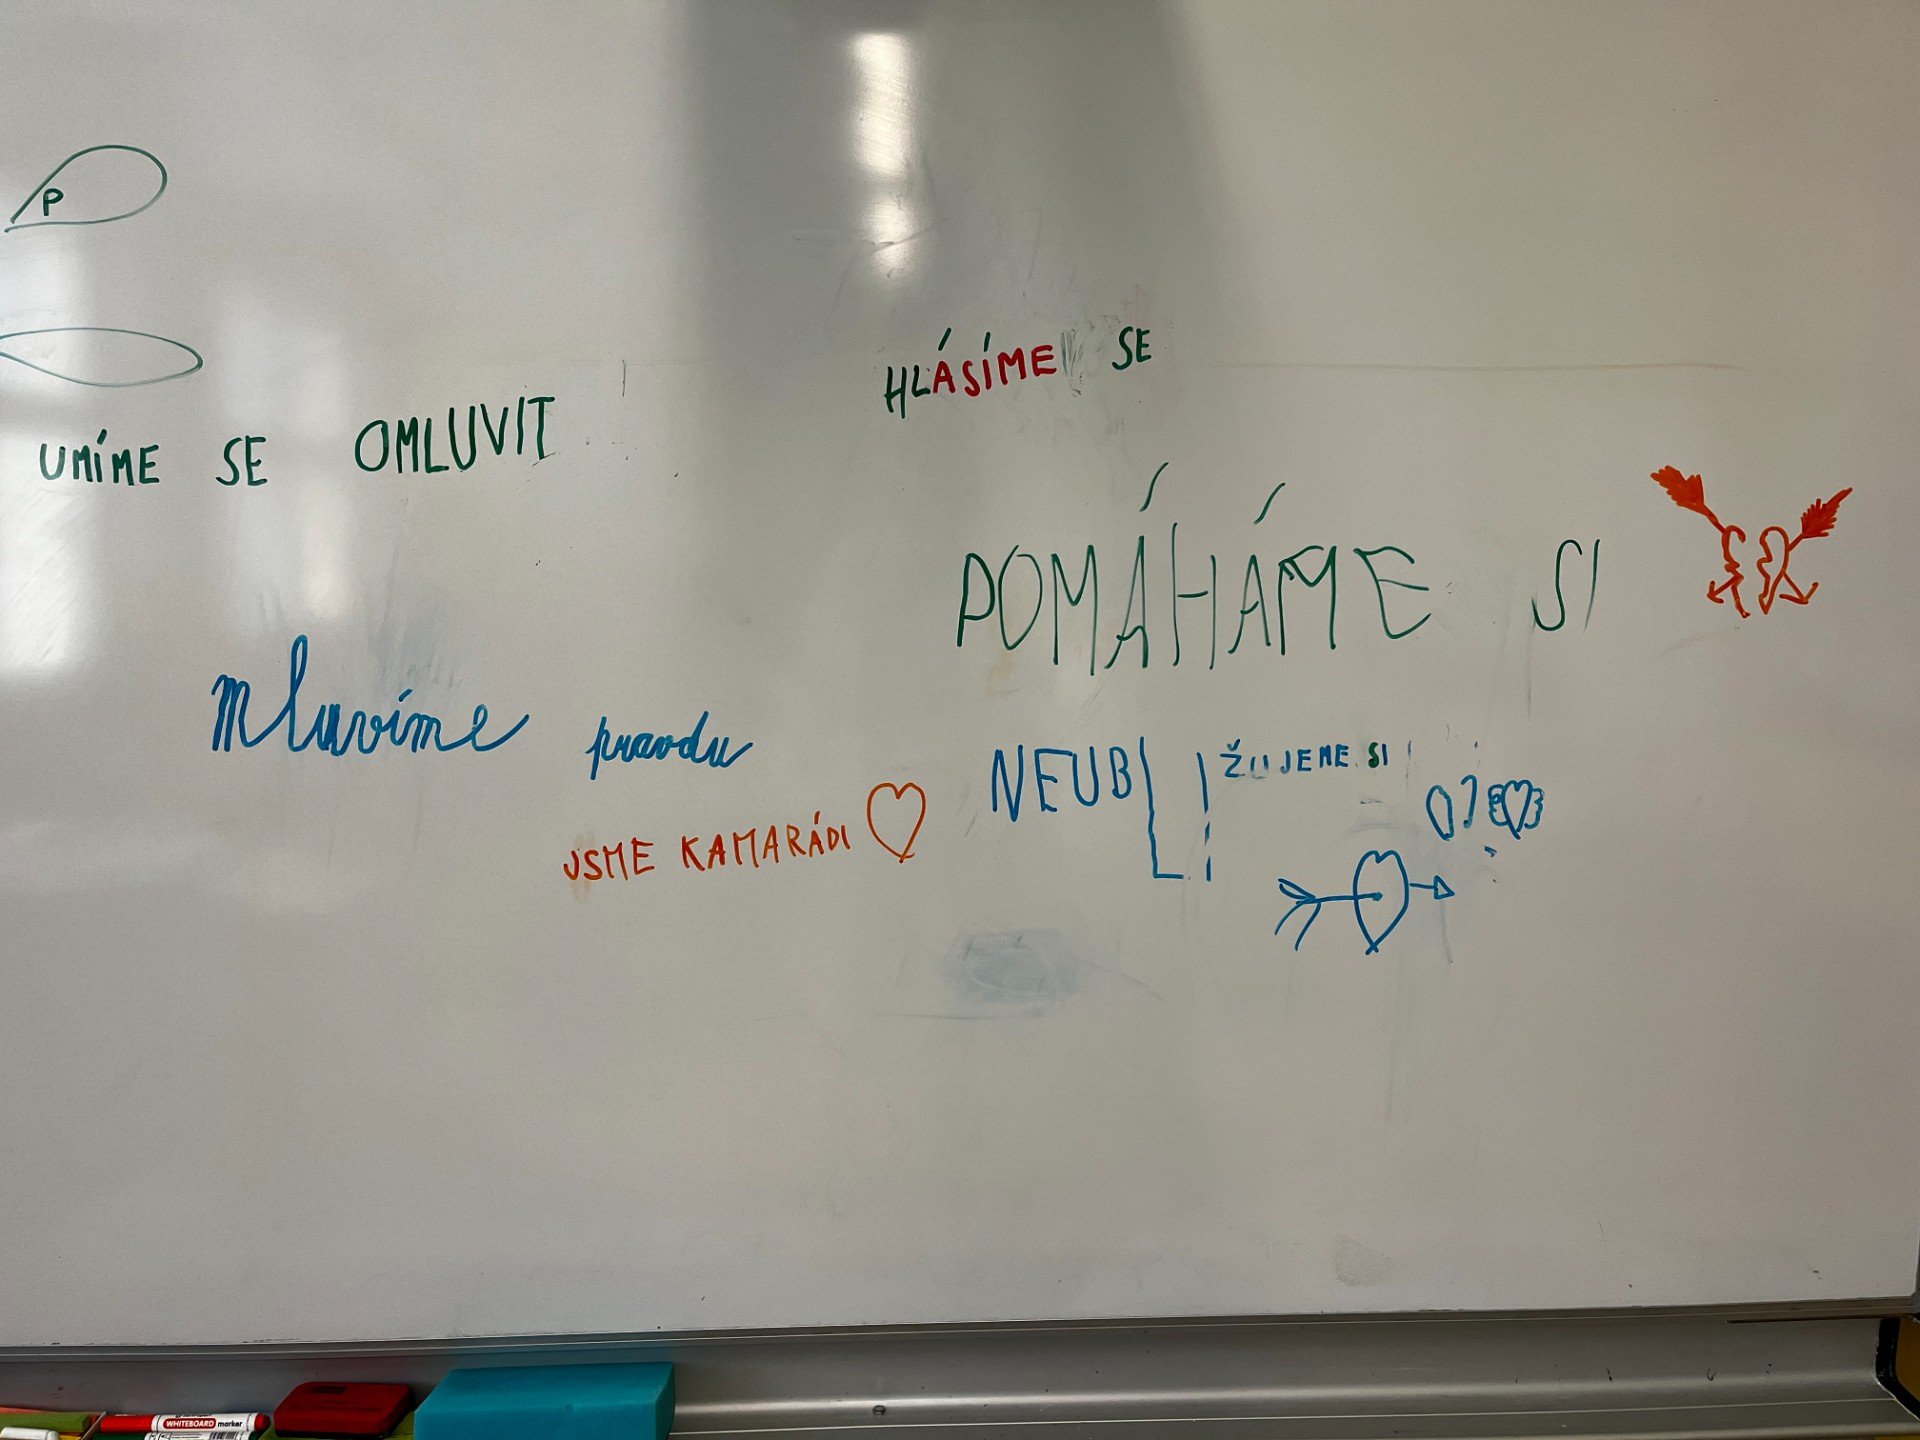 P
HLÁSÍME SE
UMÍME SE OMLUVIT
POMÁHÁME SI
Mluvíme pravdu
NEUBLIŽUJEME SI
JSME KAMARÁDI
WHITEBOARD marker